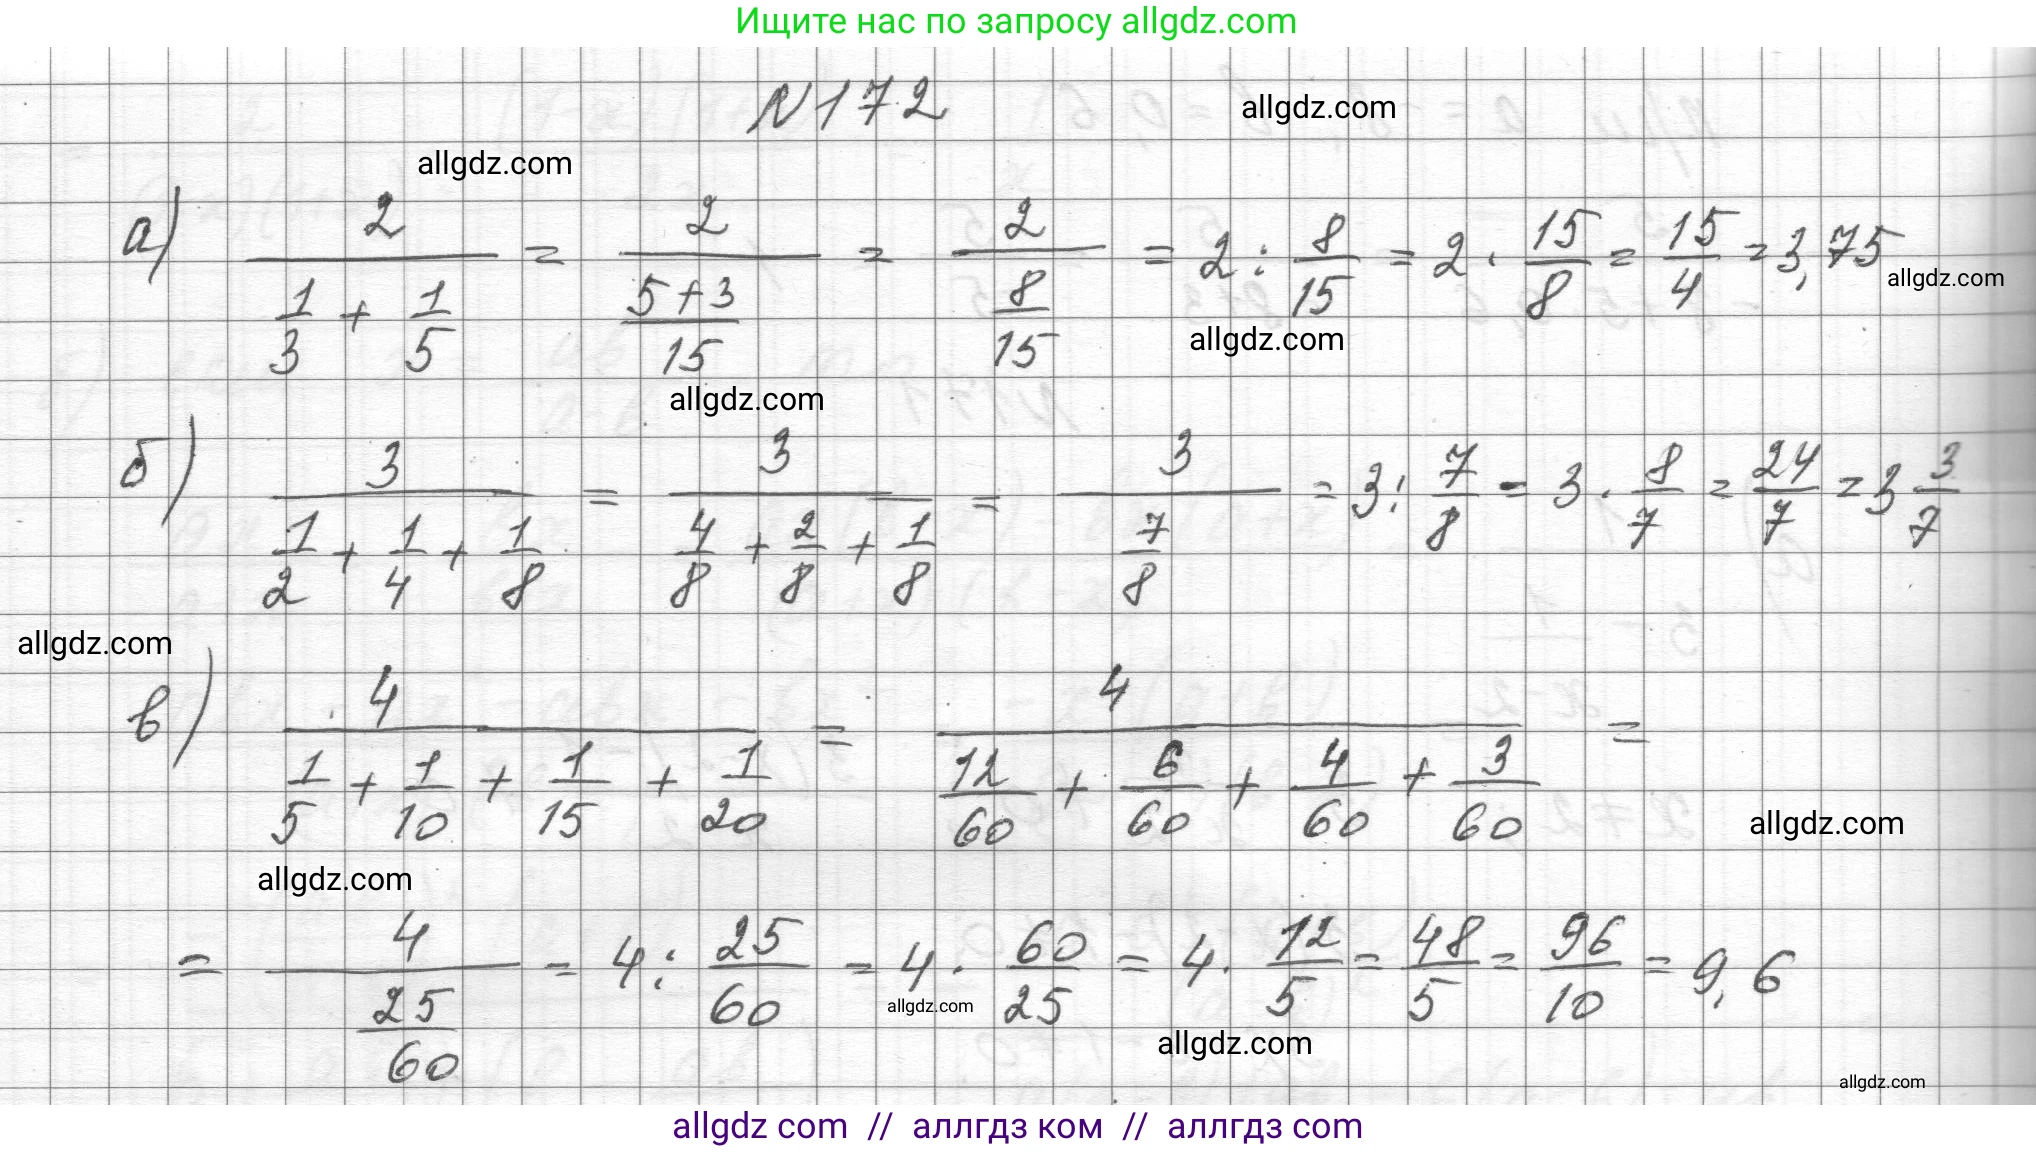 Ищите нас по запросу allgdz.com
N172
allgdz.com
allgdz.com
а) 2/(1/3 + 1/5) = 2/((5+3)/15) = 2/(8/15) = 2 : 8/15 = 2 · 15/8 = 15/4 = 3,75
allgdz.com
allgdz.com
allgdz.com
б) 3/(1/2 + 1/4 + 1/8) = 3/(4/8 + 2/8 + 1/8) = 3/(7/8) = 3 : 7/8 = 3 · 8/7 = 24/7 = 3 3/7
allgdz.com
в) 4/(1/5 + 1/10 + 1/15 + 1/20) = 4/(12/60 + 6/60 + 4/60 + 3/60) =
allgdz.com
allgdz.com
= 4/(25/60) = 4 : 25/60 = 4 · 60/25 = 4 · 12/5 = 48/5 = 96/10 = 9,6
allgdz.com
allgdz.com
allgdz.com
allgdz com // аллгдз ком // аллгдз com